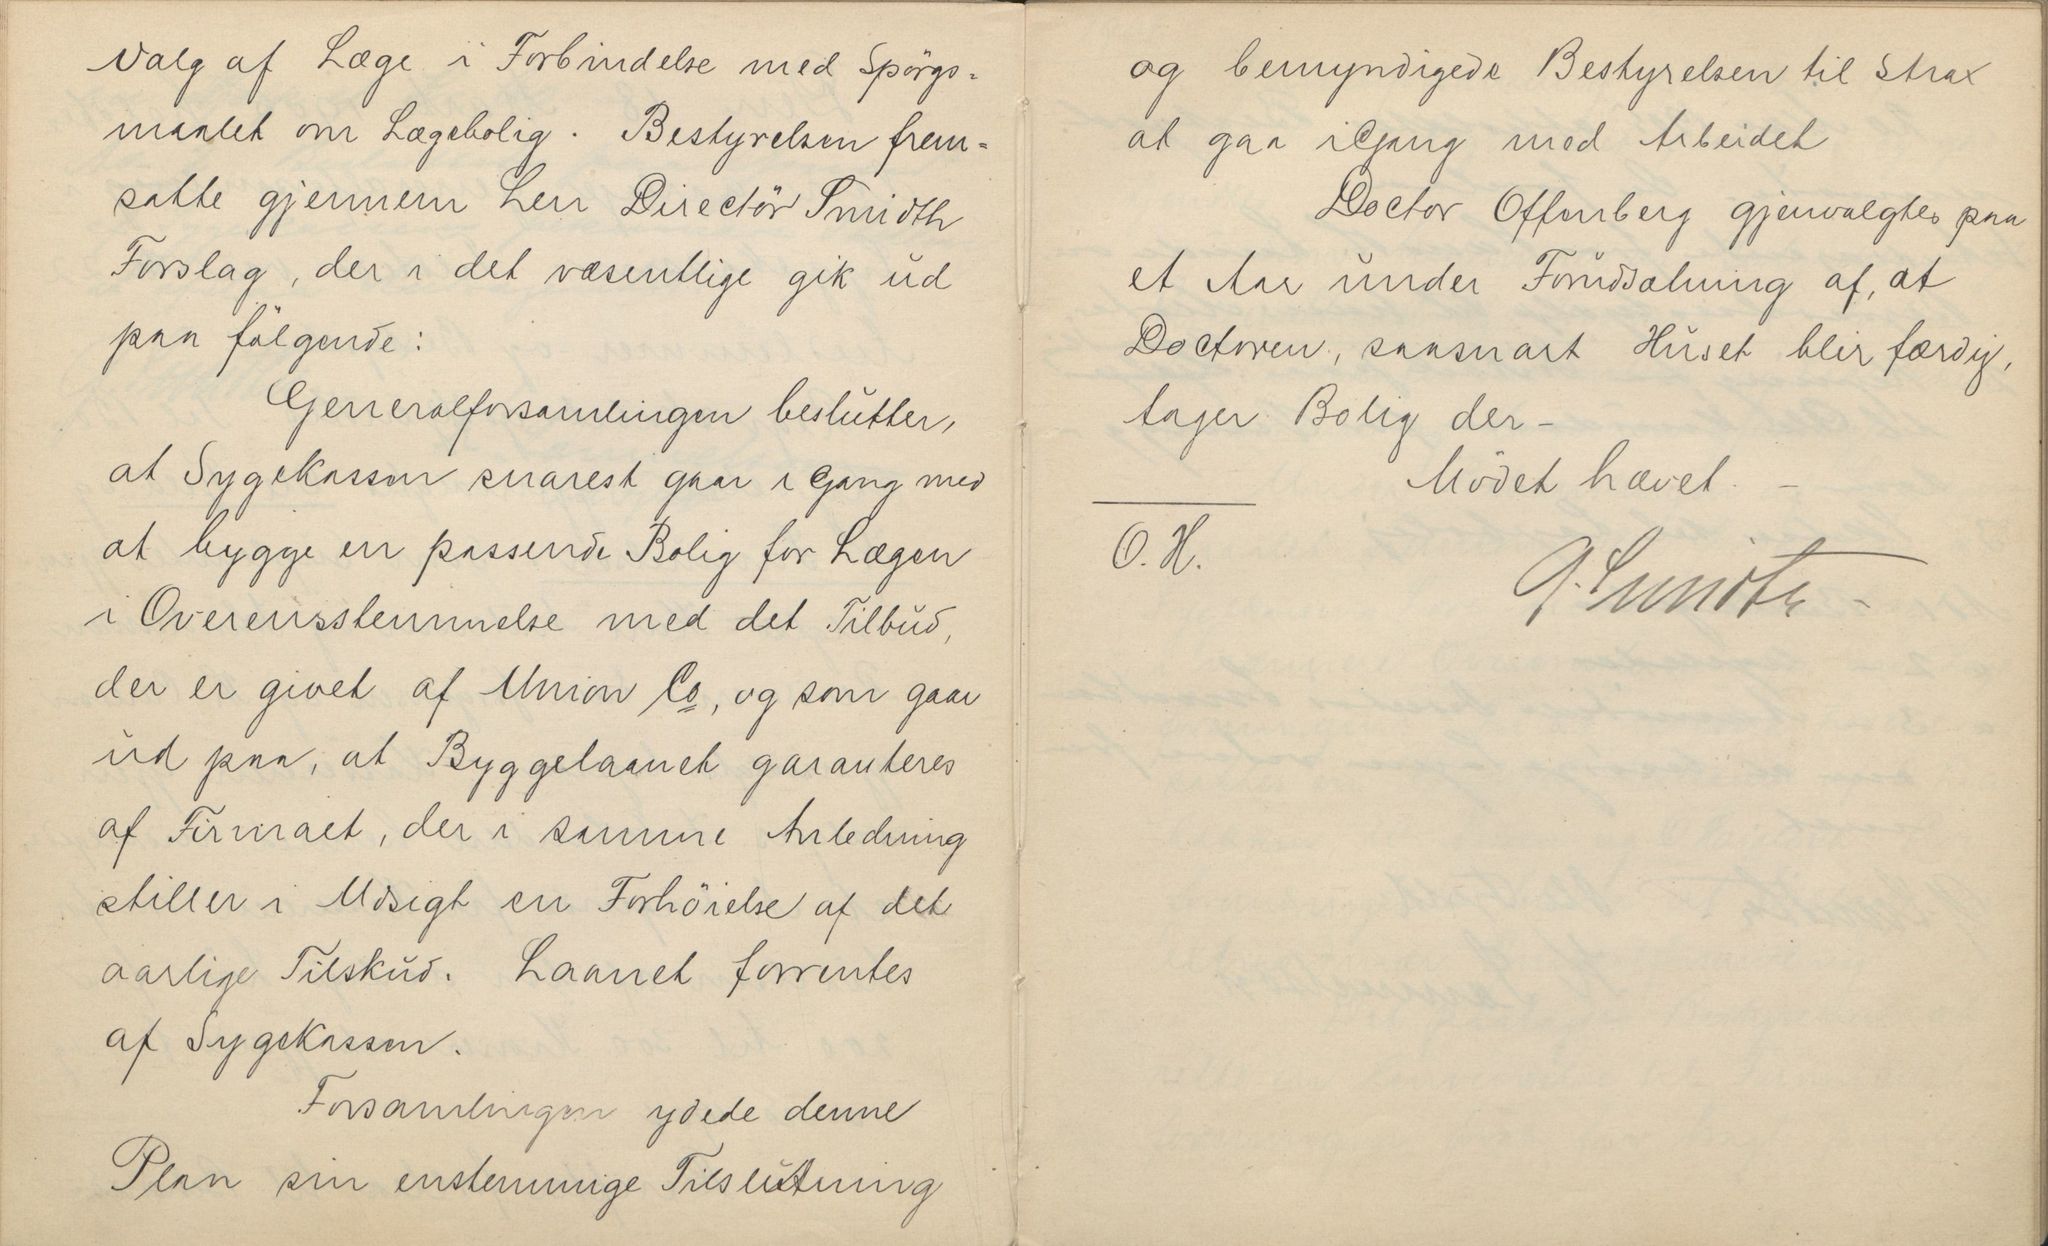 Valg af Læge i Forbindelse med Spörgs-
maalet om Lægebolig. Bestyrelsen frem-
satte gjennem Herr Directör Smidth
Forslag, der i det væsentlige gik ud
paa fölgende:
Generalforsamlingen beslutter,
at Sygekassen snarest gaar i Gang med
at bygge en passende Bolig for Lægen
i Overensstemmelse med det Tilbud,
der er givet af Union Co, og som gaar
ud paa, at Byggelaanet garanteres
af Firmaet, der i samme Anledning
stiller i Udsigt en Forhöielse af det
aarlige Tilskud. Laanet forrentes
af Sygekassen.
Forsamlingen ydede denne
Plan sin enstemmige Tilslutning
og bemyndigede Bestyrelsen til strax
at gaa igang med Arbeidet
Doctor Offenberg gjenvalgtes paa
et Aar under Forudsætning af, at
Doctoren, saasnart Huset blir færdig,
tager Bolig der -
Mödet hævet. -
O. H.
G. Smidth -